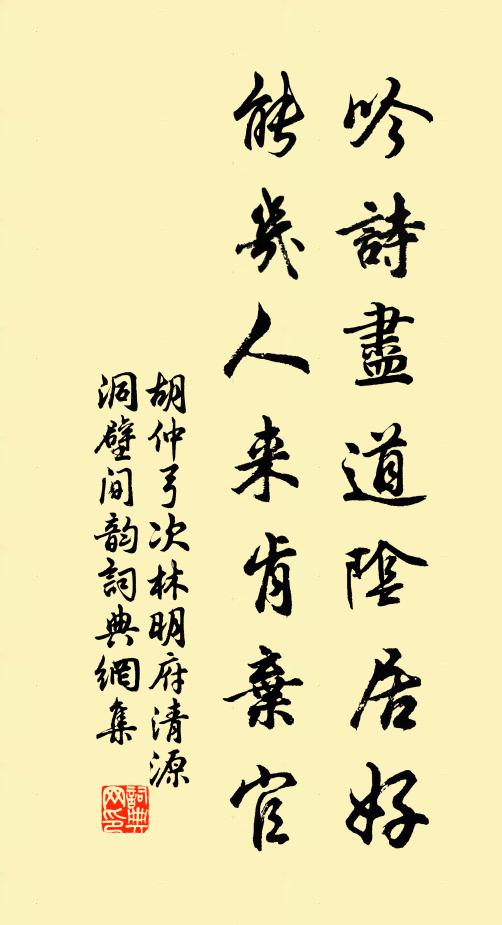 吟詩盡道隱居好
能幾人来肯棄官
胡仲弓次林明府清源
洞壁間韵詞典網集
詞典
网印